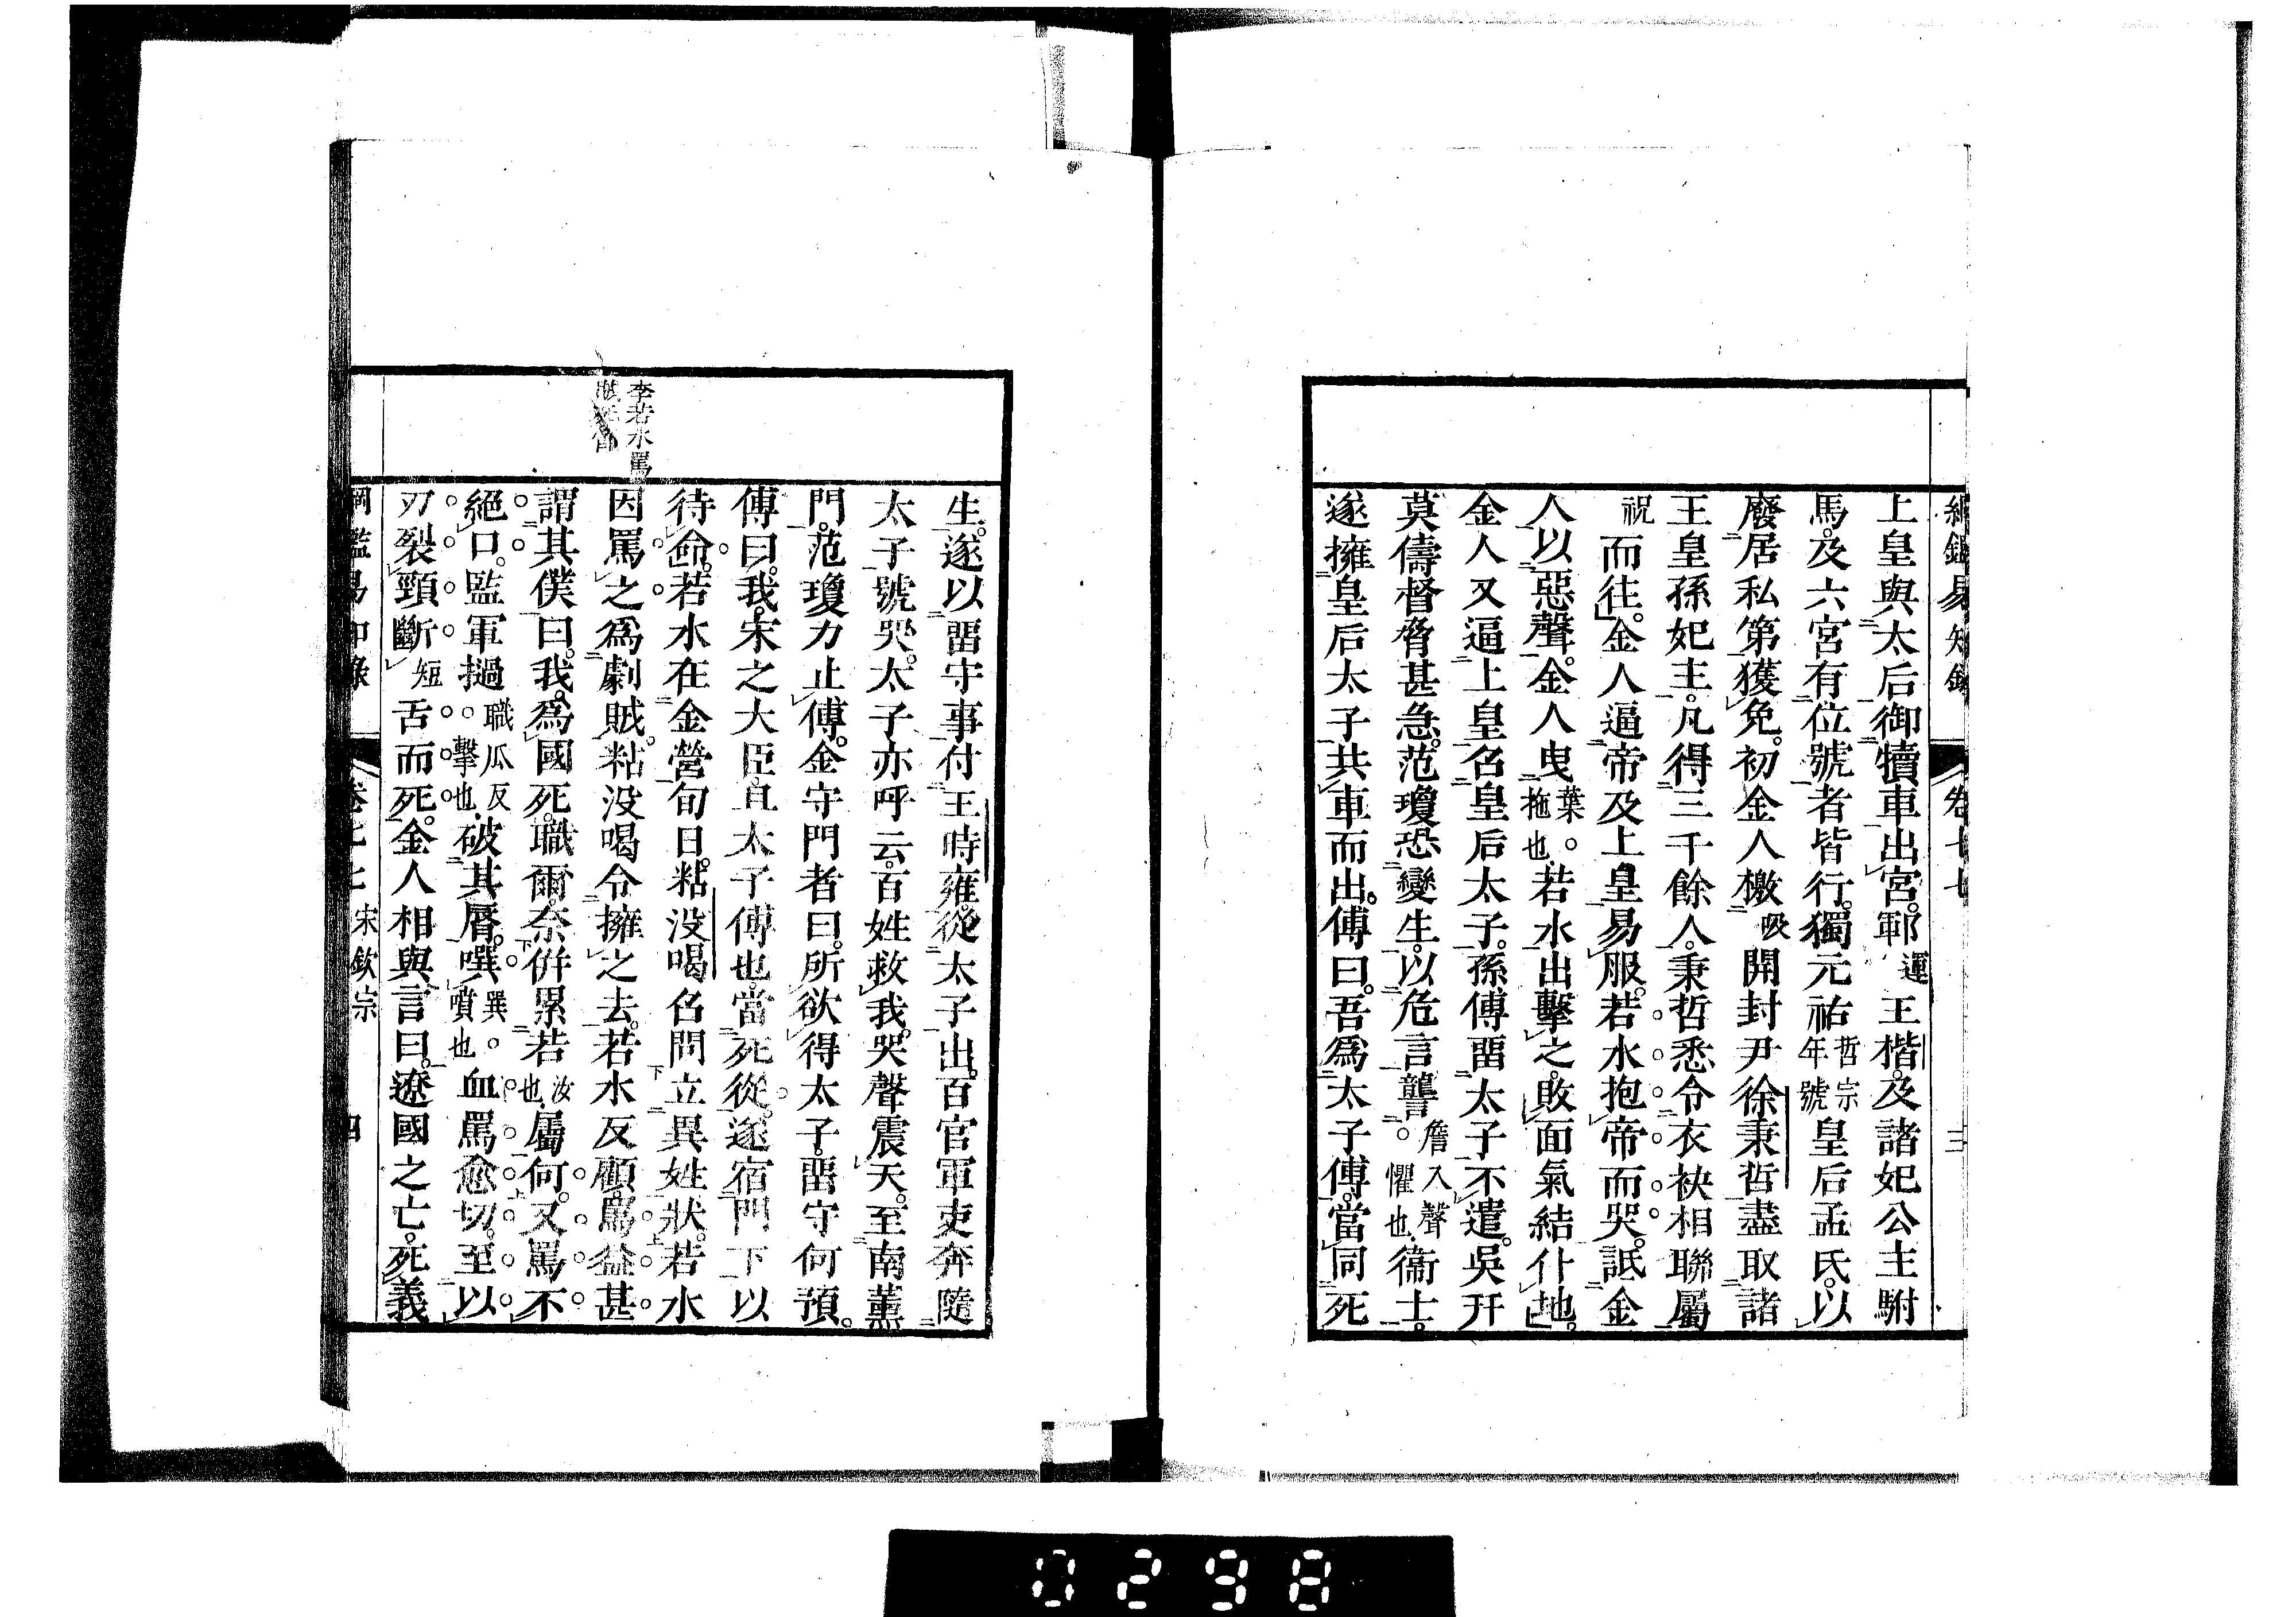 綱鑑易知錄 卷七七 三
上皇與太后御犢車出宮。鄆運王楷。及諸妃公主駙
馬。及六宮有位號者皆行。獨元祐哲宗年號皇后孟氏。以
廢居私第獲免。初金人檄吸開封尹徐秉哲盡取諸
王皇孫妃主。凡得三千餘人。秉哲悉令衣袂相聯屬
祝而往。金人逼帝及上皇易服。若水抱帝而哭。詆金
人以惡聲。金人曳葉。拖也。若水出擊之。敗面氣結仆地。
金人又逼上皇召皇后太子。孫傅畱太子不遣。吳幵
莫儔督脅甚急。范瓊恐變生。以危言讋詹入聲。懼也。衞士。
遂擁皇后太子共車而出。傅曰。吾爲太子傅。當同死
生。遂以畱守事付王時雍。從太子出。百官軍吏奔隨
太子號哭。太子亦呼云。百姓救我。哭聲震天。至南薰
門。范瓊力止傅。金守門者曰。所欲得太子。畱守何預。
傅曰。我宋之大臣。且太子傅也。當死從。遂宿門下以
待命。若水在金營旬日。粘没喝召問立異姓狀。若水
李若水罵
因罵之爲劇賊。粘没喝令擁之去。若水反顧。罵益甚
謂其僕曰。我爲國死。職爾。奈併累若汝也。屬何。又罵不
絕口。監軍撾職瓜反。擊也。破其脣。噀巽。噴也血罵愈切。至以
刃裂頸斷短舌而死。金人相與言曰。遼國之亡。死義
綱鑑易知錄 卷七七 宋欽宗 四
0298